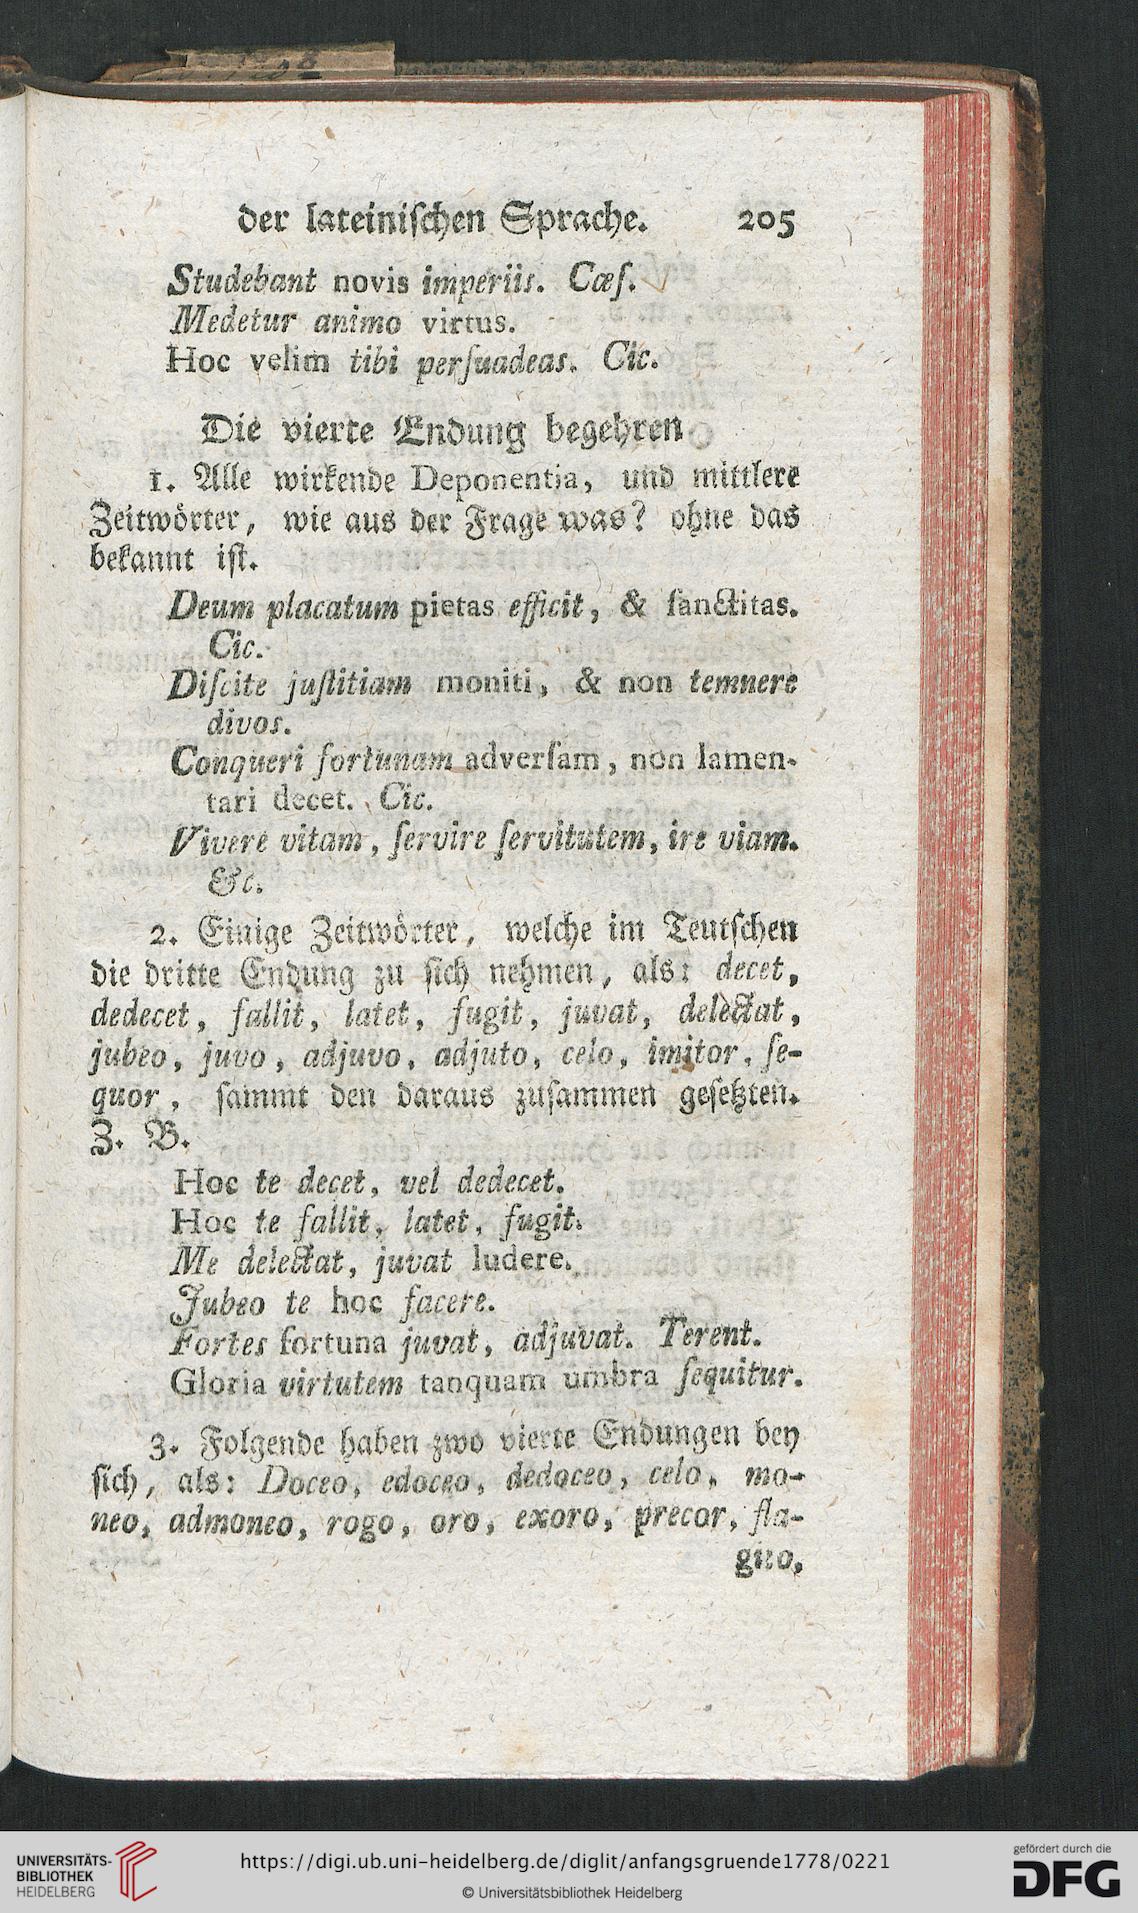 der lateiniſchen Sprache. 205
Studebant novis imperiis. Cæſ.
Medetur animo virtus.
Hoc velim tibi perſuadeas. Cic.
Die vierte Endung begehren
1. Alle wirkende Deponentia, und mittlere
Zeitwörter, wie aus der Frage was? ohne das
bekannt iſt.
Deum placatum pietas efficit, & ſanctitas.
Cic.
Diſcite juſtitiam moniti, & non temnere
divos.
Conqueri fortunam adverſam, non lamen-
tari decet. Cic.
Vivere vitam, ſervire ſervitutem, ire viam.
&c.
2. Einige Zeitwörter, welche im Teutſchen
die dritte Endung zu ſich nehmen, als: decet,
dedecet, fallit, latet, fugit, juvat, delectat,
jubeo, juvo, adjuvo, adjuto, celo, imitor, ſe-
quor, ſammt den daraus zuſammen geſetzten.
Z. B.
Hoc te decet, vel dedecet.
Hoc te fallit, latet, fugit.
Me delectat, juvat ludere.
Jubeo te hoc facere.
Fortes fortuna juvat, adjuvat. Terent.
Gloria virtutem tanquam umbra ſequitur.
3. Folgende haben zwo vierte Endungen bey
ſich, als: Doceo, edoceo, dedoceo, celo, mo-
neo, admoneo, rogo, oro, exoro, precor, fla-
gito,
UNIVERSITÄTS-
BIBLIOTHEK
HEIDELBERG
https://digi.ub.uni-heidelberg.de/diglit/anfangsgruende1778/0221
© Universitätsbibliothek Heidelberg
gefördert durch die
DFG